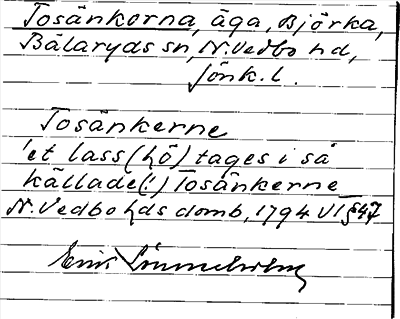 Tosänkorna, äga, Björka,
Bälaryds sn, N. Vedbo hd,
Jönk. l.
Tosänkerne
'et lass (hö) tages i så
kallade (!) Tosänkerne
N. Vedbo hds domb, 1794 VI § 47